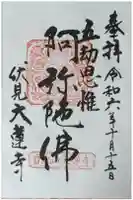 奉拝
令和六年十月十五日
五劫思惟
阿弥陀佛
伏見大蓮寺